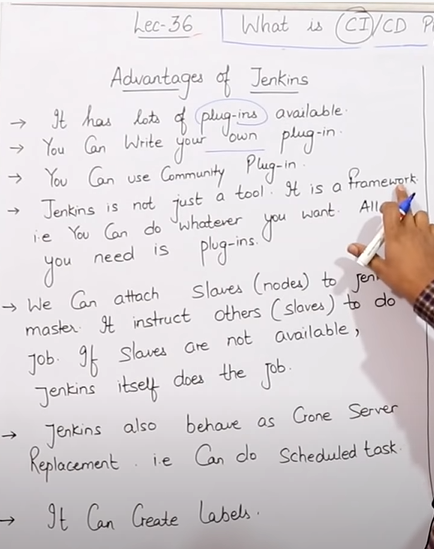 Lec-36
What is CI/CD P
Advantages of Jenkins
→ It has lots of plug-ins available.
→ You Can Write your own plug-in.
→ You Can use Community Plug-in.
→ Jenkins is not just a tool. It is a framework.
i.e You Can do whatever you want. All
you need is plug-ins.
→ We Can attach Slaves (nodes) to Jen
master. It instruct others (slaves) to do
Job. If Slaves are not available,
Jenkins itself does the job.
→ Jenkins also behave as Crone Server
Replacement. i.e Can do Scheduled task.
→ It Can Create Labels.